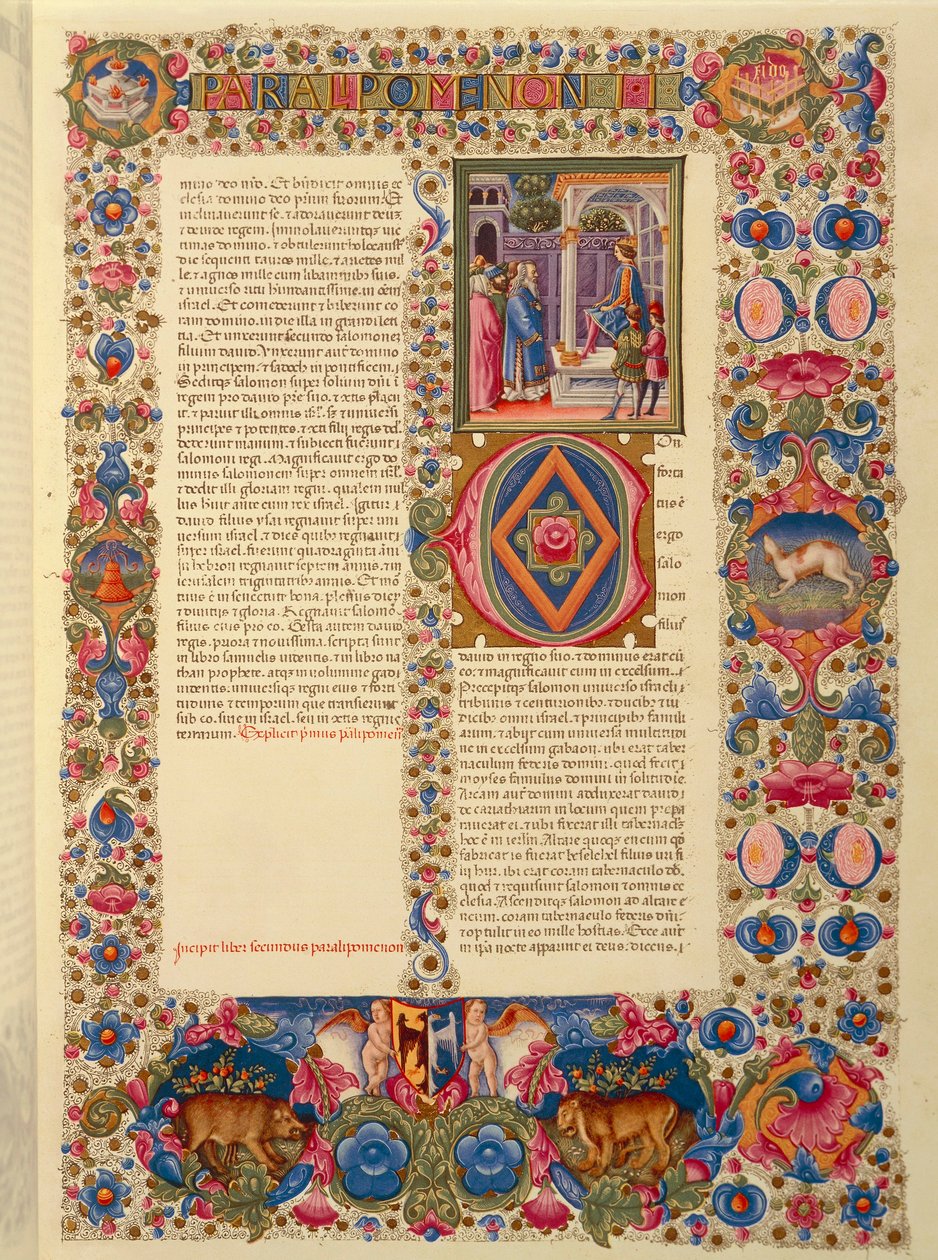 PARALIPOMENON II
FIDO
mino deo nro. Et bndixit omnis ec
clesia domino deo prum suorum. Et
inclinaverunt se. et adoraverunt deuz
et deinde regem. Immolaveruntqz vic
timas domino. et obtulerunt holocaust
die sequenti tauros mille. et arietes mil
le. et agnos mille cum libaminibus suis.
et universo ritu habundantissime. in oem
israel. Et comederunt et biberunt co
ram domino. in die illa in grandi leti
tia. Et unxerunt secundo salomonem
filium david. Unxerunt aut domino
in principem. et sadoch in pontificem.
Seditqz salomon super solium dni i
regem pro david patre suo. et placu
it. et paruit illi omnis isrl. Sz et universi
principes et potentes. et filii regis
dederunt manum. et subiecti fuerunt
salomoni regi. Magnificavit ergo do
minus salomonem super omnem isrl.
et dedit illi gloriam regni. qualem nul
lus habuit ante eum rex israel. Igitur
david filius ysai regnavit super uni
versum israel. et dies quibz regnavit
super israel. fuerunt quadraginta anni
In hebron regnavit septem annis. et in
ierusalem triginta tribz annis. Et mor
tuus e in senectute bona. plenus dierz
et divitiis et gloria. Regnavit salomon
filius eius pro eo. Gesta autem david
regis. priora et novissima. scripta sunt
in libro samuelis videntis. et in libro na
than prophete. atqz in volumine gad
videntis. universiqz regni eius et forti
tudinis et temporum que transierunt
sub eo. sive in israel. seu in regnis
terrarum. Explicit primus paralipomen
Incipit liber secundus paralipomenon
On
forta
tus e
ergo
salo
mon
filius
david in regno suo. et dominus erat cu
eo. et magnificavit eum in excelsum.
Precepitqz salomon universo israeli
tribunis et centurionibz. et ducibz et iu
dicibz omni israel. et principibz famili
arum. et abiit cum universa multitudi
ne in excelsum gabaon. ubi erat taber
naculum federis domini. quod fecit
moyses famulus domini in solitudine.
Arcam aut domini adduxerat david
de cariathiarim in locum quem prepa
raverat ei. et ubi fixerat illi tabernaclz
hoc e in ierlm. Altare quoqz eneum qd
fabricatus fuerat beselehel filius uri fi
lii hur. ibi erat coram tabernaculo dni.
quod et requisivit salomon et omnis ec
clesia. Ascenditqz salomon ad altare e
neum. coram tabernaculo federis dni.
et optulit in eo mille hostias. Ecce aut
in ipa nocte apparuit ei deus. dicens.